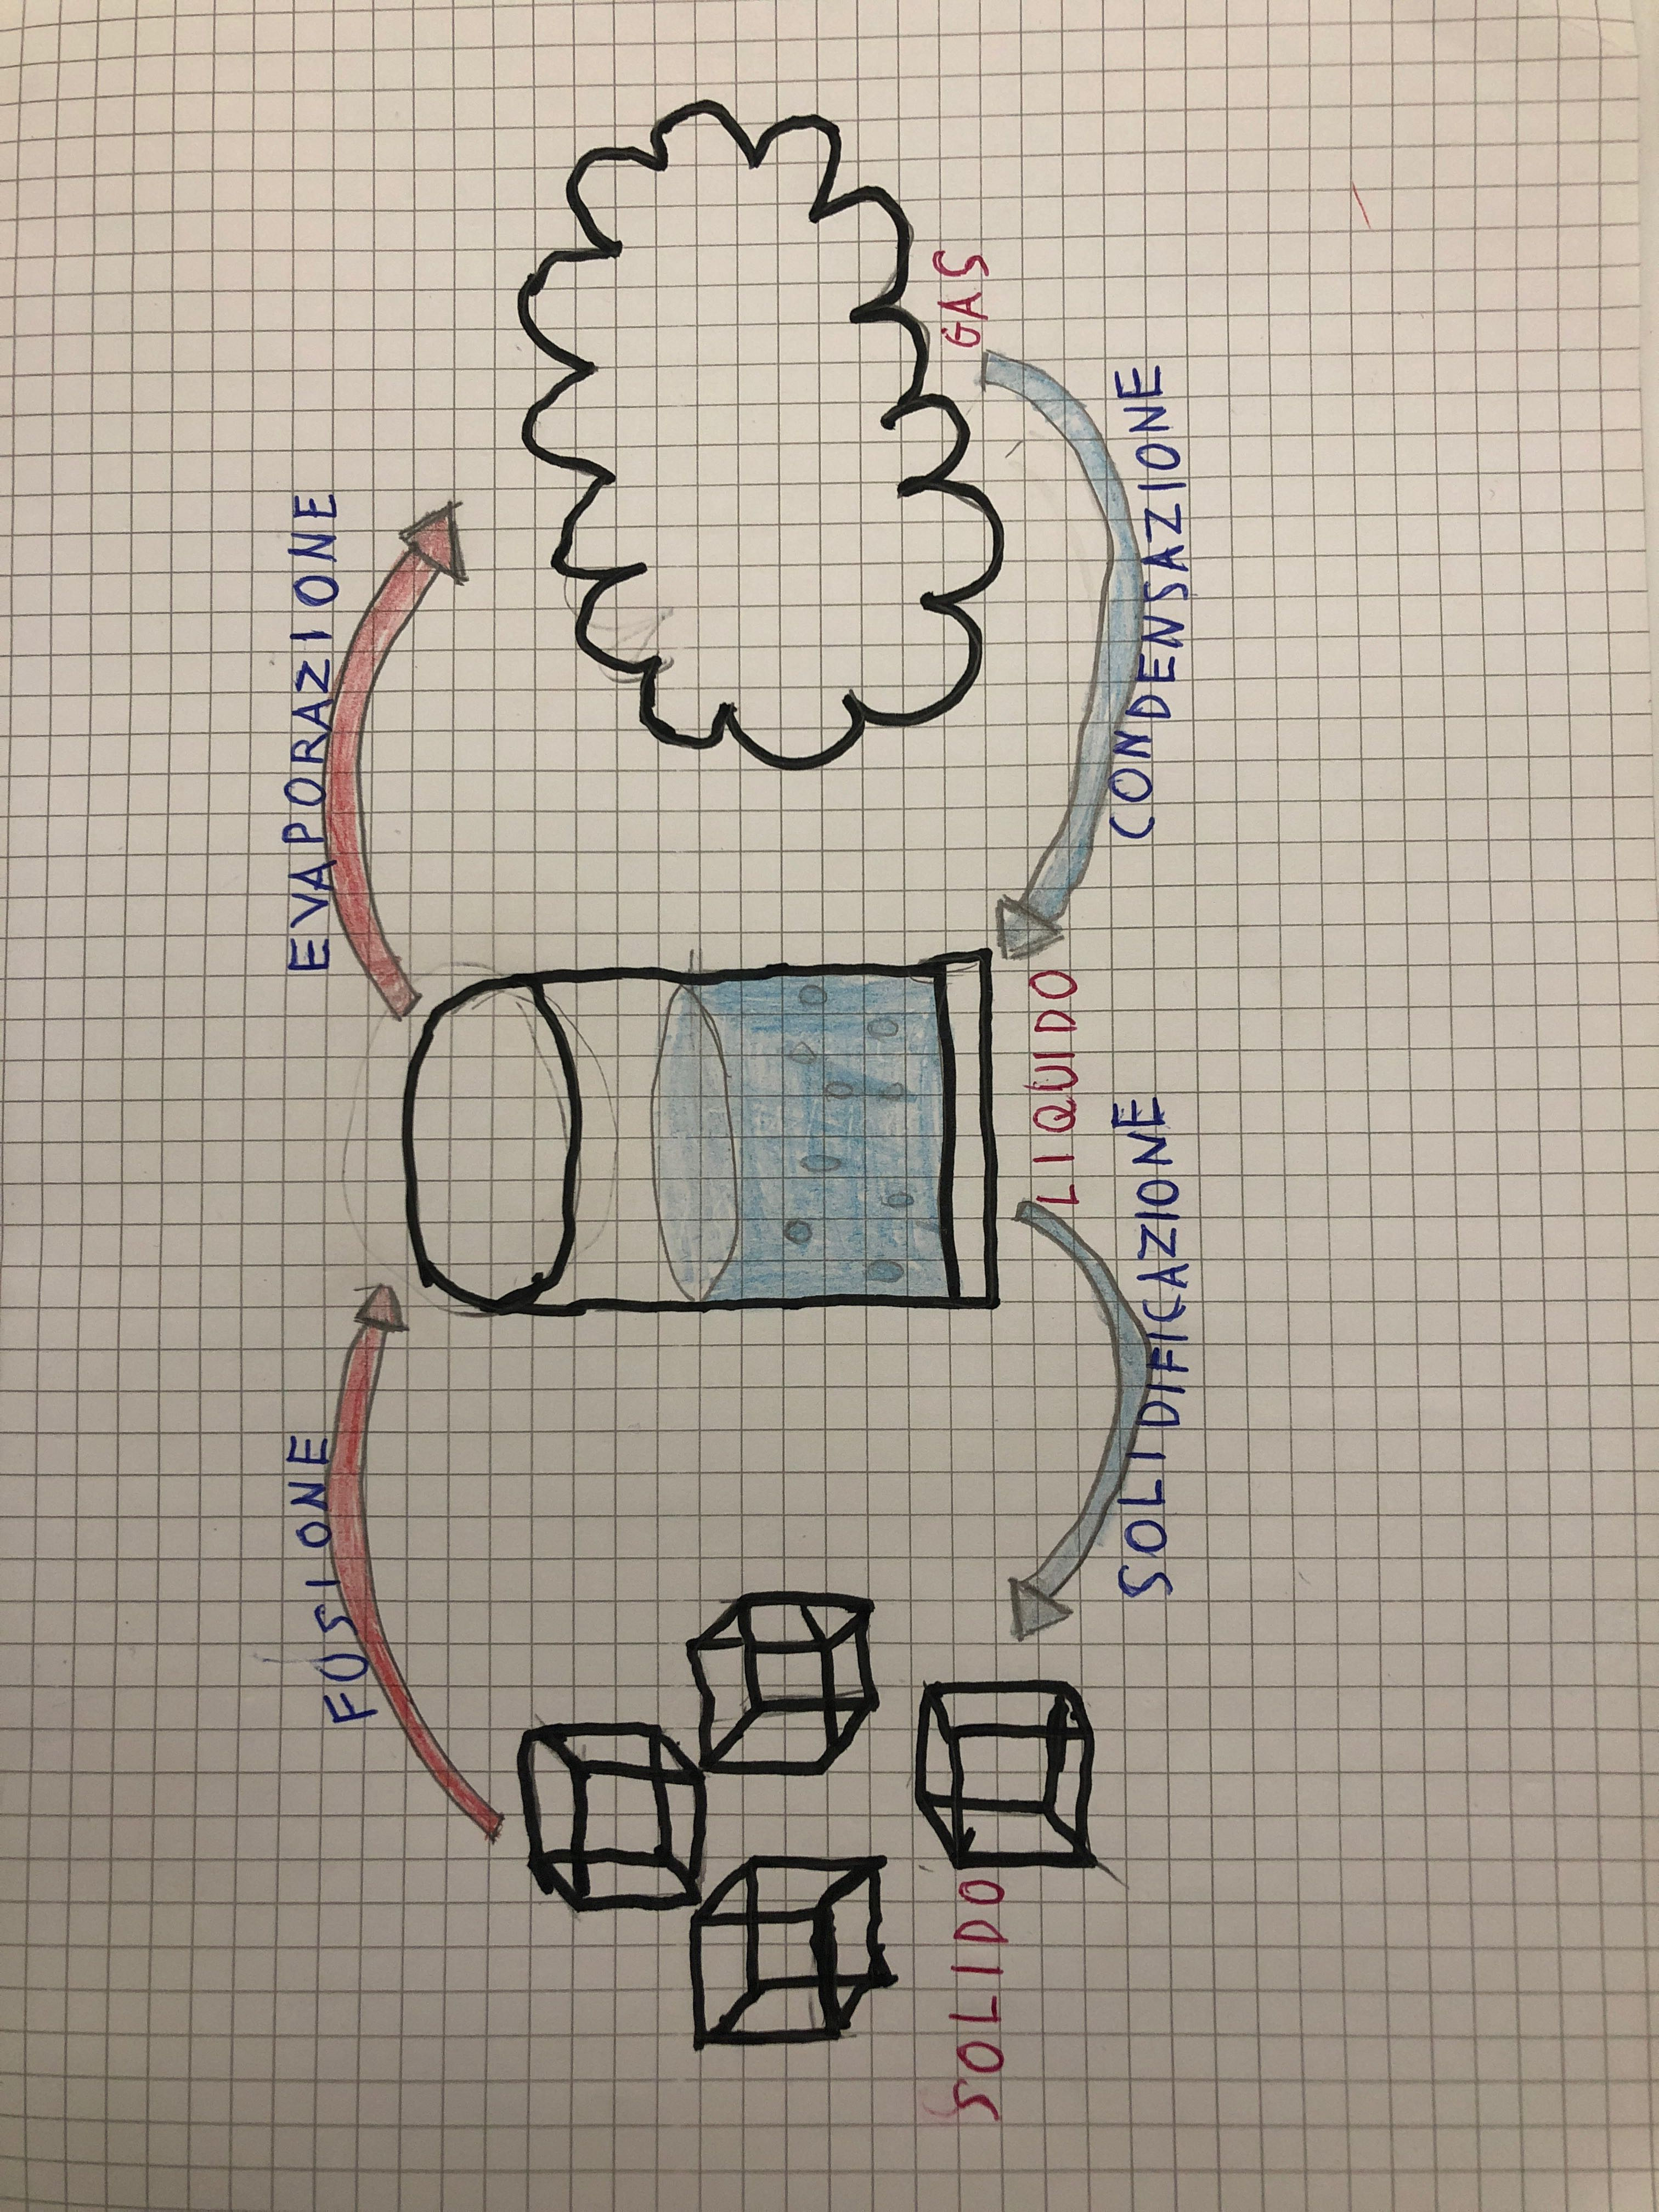 FUSIONE
EVAPORAZIONE
SOLIDO
LIQUIDO
GAS
SOLIDIFICAZIONE
CONDENSAZIONE